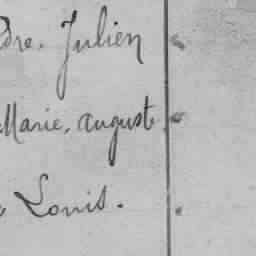 dre. Julien
Marie, auguste
Louis.